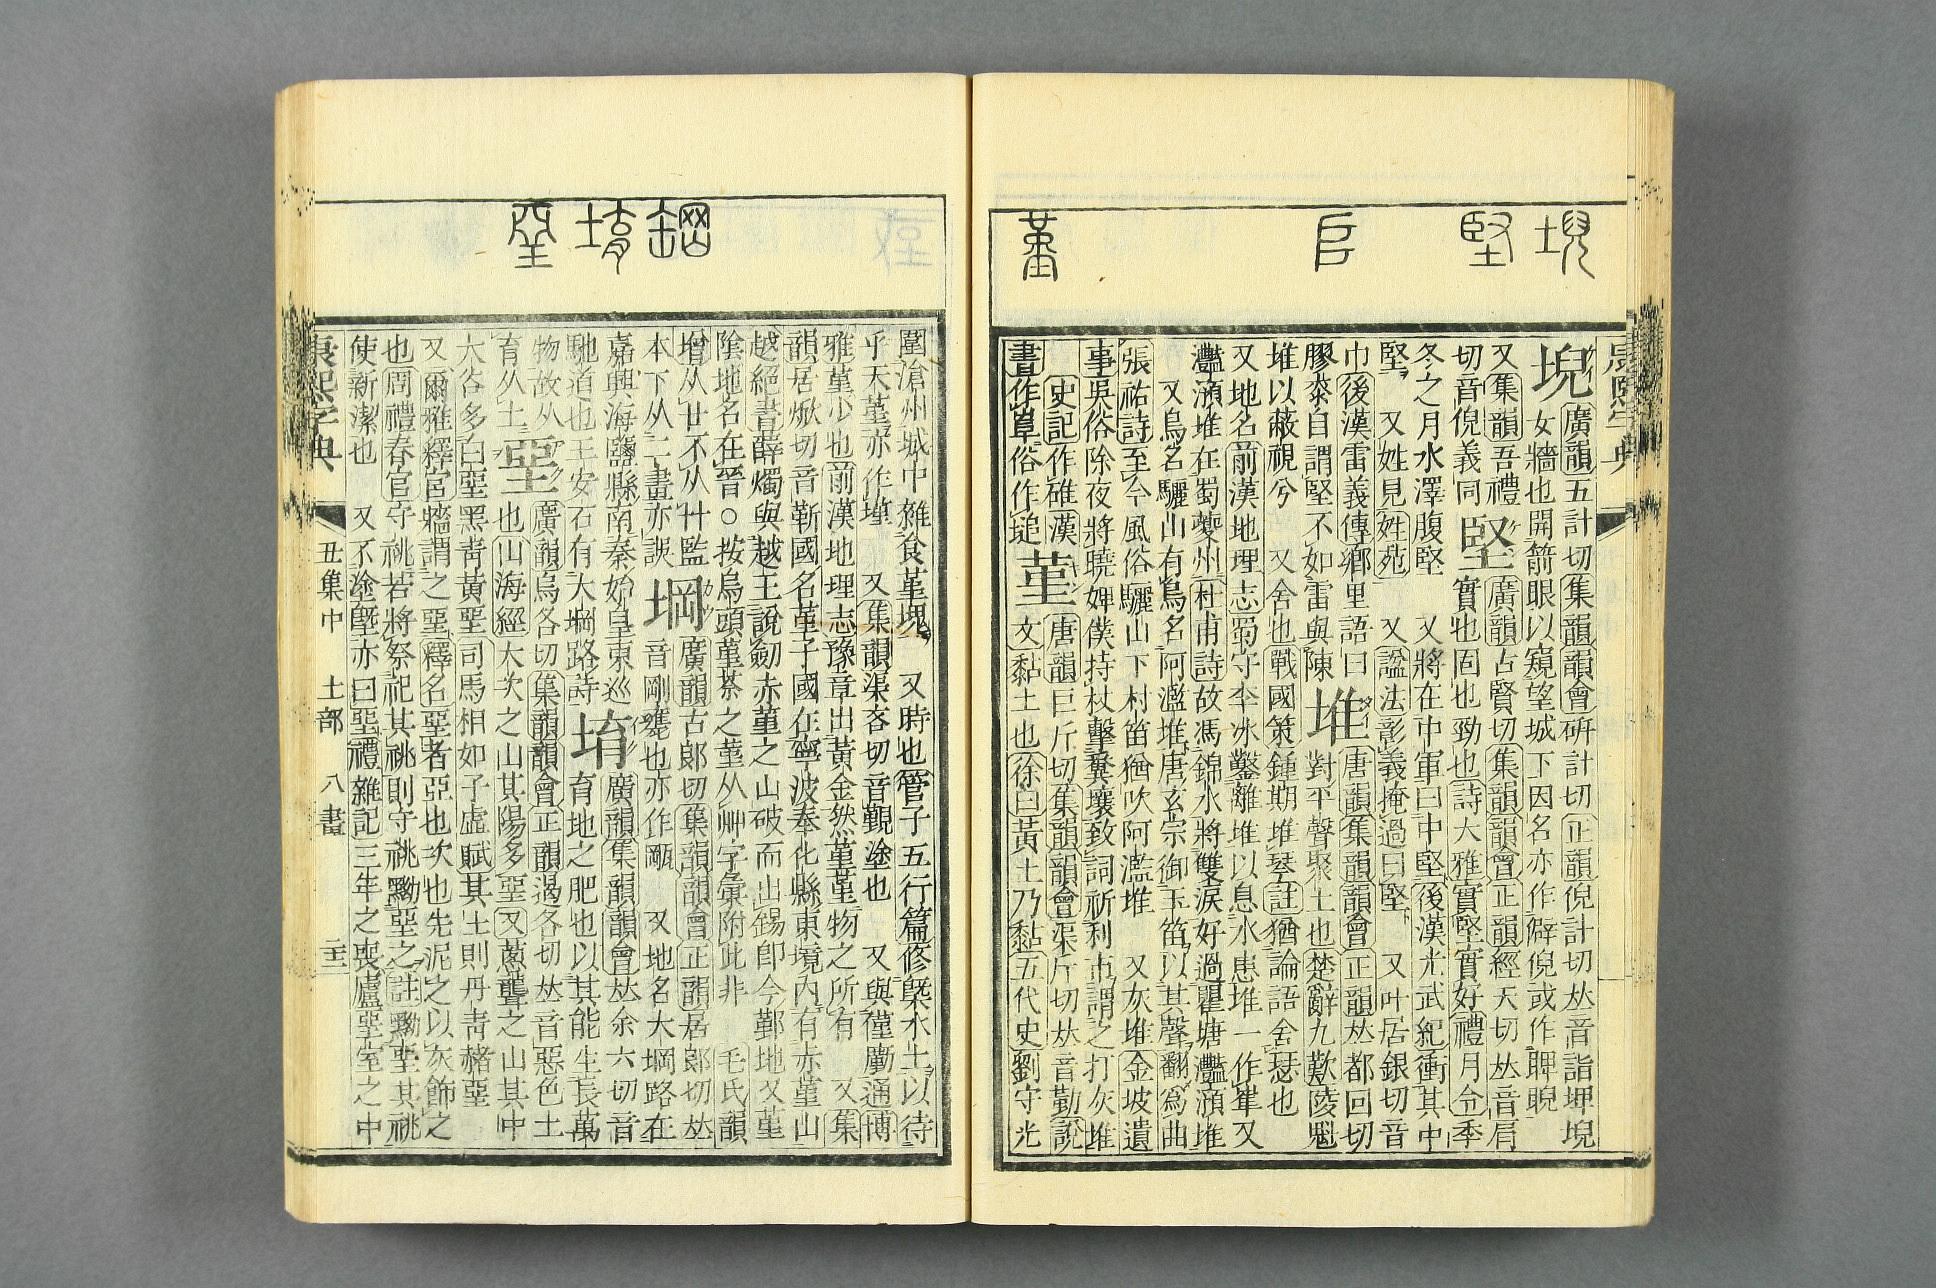 堄 堅 𠂤 堇
康熙字典
堄廣韻五計切集韻韻會硏計切正韻倪計切𠀤音詣埤堄
女牆也開箭眼以窺望城下因名亦作僻倪或作睥睨
又集韻吾禮
切音倪義同
堅廣韻古賢切集韻韻會正韻經天切𠀤音肩
實也固也勁也詩大雅實堅實好禮月令季
冬之月水澤腹堅 又將在中軍曰中堅後漢光武紀衝其中
堅 又姓見姓苑 又諡法彰義掩過曰堅 又叶居銀切音
巾後漢雷義傳鄉里語曰
膠桼自謂堅不如雷與陳
堆唐韻集韻韻會正韻𠀤都回切
對平聲聚土也楚辭九歎陵魁
堆以蔽視兮 又舍也戰國策鍾期堆琴註猶論語舍瑟也
又地名前漢地理志蜀守李冰鑿離堆以息水患堆一作 又
灩澦堆在蜀夔州杜甫詩故馮錦水將雙淚好過瞿塘灩澦堆
又烏名驪山有烏名阿濫堆唐玄宗御玉笛以其聲翻爲曲
張祐詩至今風俗驪山下村笛猶吹阿濫堆 又灰堆金坡遺
事吳俗除夜將曉婢僕持杖擊糞壤致詞祈利市謂之打灰堆
史記作碓漢
書作 俗作塠
堇唐韻巨斤切集韻韻會渠斤切𠀤音勤說
文黏土也徐曰黃土乃黏五代史劉守光
堈 堉 堊
圍滄州城中雜食堇塊 又時也管子五行篇修槩水土以待
乎天堇亦作墐 又集韻渠吝切音覲塗也 又與僅廑通博
雅堇少也前漢地理志豫章出黃金然堇堇物之所有 又集
韻居焮切音靳國名堇子國在寧波奉化縣東境內有赤堇山
越絕書薛燭與越王說劒赤堇之山破而出錫卽今鄞地又堇
陰地名在晉○按烏頭堇荼之堇从艸字彙附此非 毛氏韻
增从廿不从卄監
本下从二畫亦誤
堈廣韻古郞切集韻韻會正韻居郞切𠀤
音剛甕也亦作㼚 又地名大堈路在
嘉興海鹽縣南秦始皇東巡
馳道也王安石有大堈路詩
堉廣韻集韻韻會𠀤余六切音
育地之肥也以其能生長萬
物故从
育从土
堊廣韻烏各切集韻韻會正韻遏各切𠀤音惡色土
也山海經大次之山其陽多堊又蔥聾之山其中
大谷多白堊黑靑黃堊司馬相如子虛賦其土則丹靑赭堊
又爾雅釋宮牆謂之堊釋名堊者亞也次也先泥之以灰飾之
也周禮春官守祧若將祭祀其祧則守祧黝堊之註黝堊其祧
使新潔也 又不塗塈亦曰堊禮雜記三年之喪廬堊室之中
康熙字典 丑集中 土部 八畫